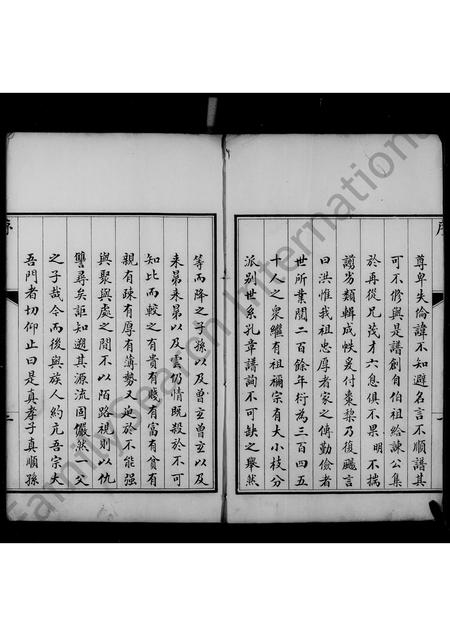 尊卑失倫諱不知避名言不順譜其
可不修與是譜創自伯祖給諫公集
於再從兄茂才六息俱不果 明不揣
謭劣類輯成帙爰付棗棃乃復颺言
曰洪惟我祖忠厚者家之傳勤儉者
世所業閱二百餘年衍為三百四五
十人之衆繼有祖禰宗有大小枝分
派别世系孔章譜詢不可缺之舉然
等而降之子孫以及曾玄曾玄以及
来晜来晜以及雲仍情既殺於不可
知比而較之有貴有賤有富有貧有
親有疎有厚有薄勢又迫於不能强
與聚與處之間不以陌路視則以仇
讐尋矣詎知遡其源流固儼然一父
之子哉今而後與族人約凢吾宗夫
吾門者切仰止曰是真孝子真順孫
FamilySearch International